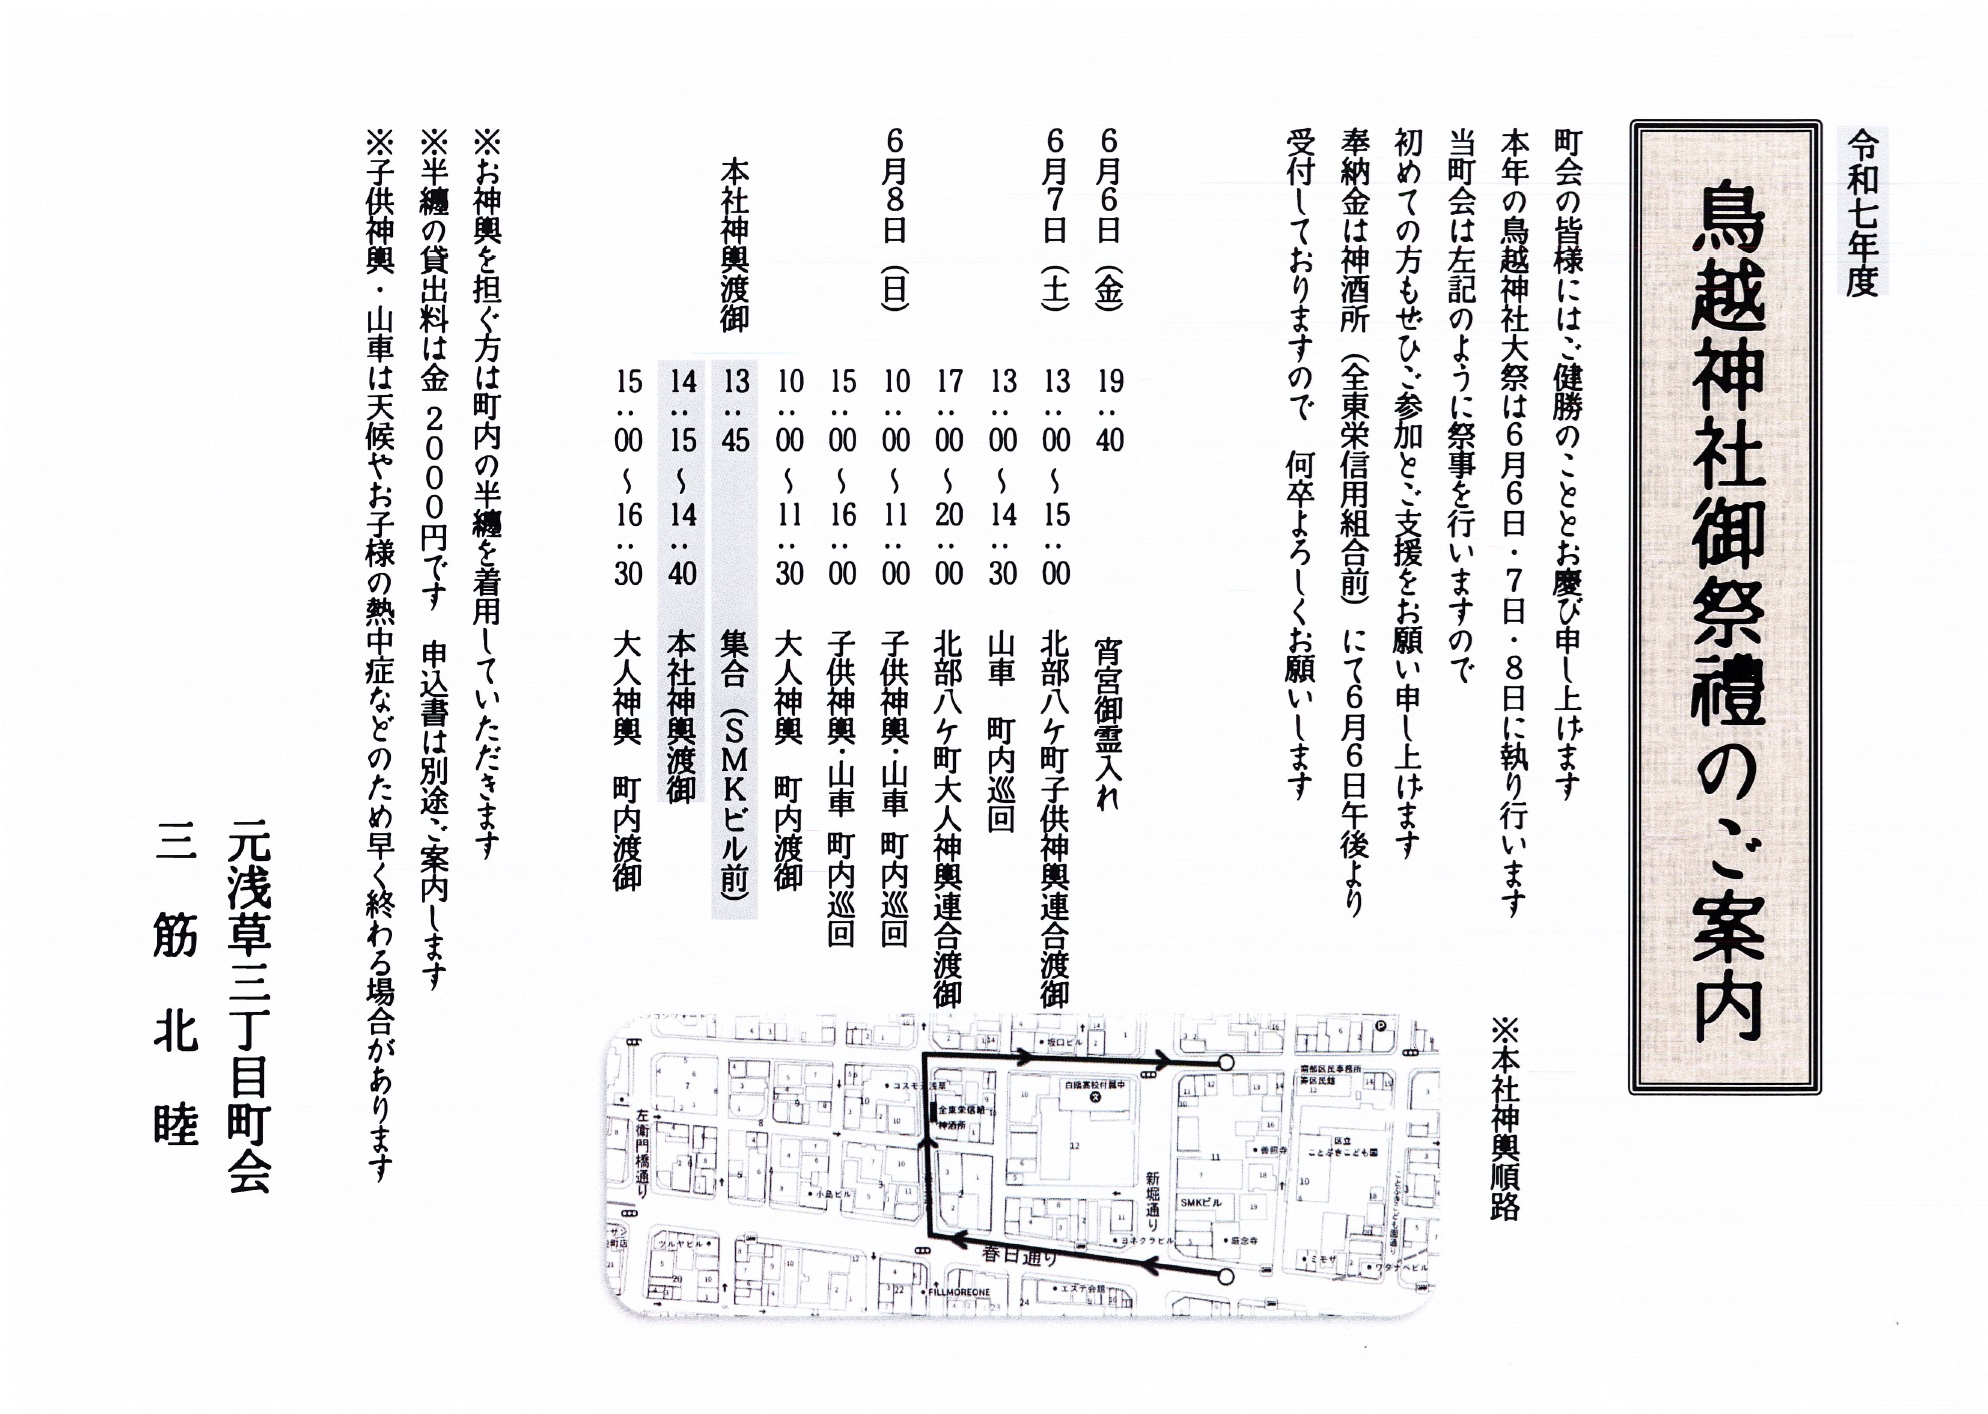 令和七年度
鳥越神社御祭禮のご案内
町会の皆様にはご健勝のこととお慶び申し上げます
本年の鳥越神社大祭は6月6日・7日・8日に執り行います
当町会は左記のように祭事を行いますので
初めての方もぜひご参加とご支援をお願い申し上げます
奉納金は神酒所（全東栄信用組合前）にて6月6日午後より
受付しておりますので　何卒よろしくお願いします
6月6日（金）　19：40　宵宮御霊入れ
6月7日（土）　13：00～15：00　北部八ケ町子供神輿連合渡御
13：00～14：30　山車　町内巡回
17：00～20：00　北部八ケ町大人神輿連合渡御
6月8日（日）　10：00～11：00　子供神輿・山車 町内巡回
15：00～16：00　子供神輿・山車 町内巡回
10：00～11：30　大人神輿　町内渡御
本社神輿渡御　13：45　集合（SMKビル前）
14：15～14：40　本社神輿渡御
15：00～16：30　大人神輿　町内渡御
※お神輿を担ぐ方は町内の半纏を着用していただきます
※半纏の貸出料は金 2000円です　申込書は別途ご案内します
※子供神輿・山車は天候やお子様の熱中症などのため早く終わる場合があります
元浅草三丁目町会
三筋北睦
※本社神輿順路
坂口ビル
コスモ元浅草
白鴎高校付属中
南部区民事務所
寿区民館
全東栄信組
神酒所
左衛門橋通り
小島ビル
新堀通り
SMKビル
善照寺
区立
ことぶきこども園
ヨネクラビル
龍念寺
ミモザ
ワタナベビル
ツルヤビル
春日通り
FILLMOREONE
エステ会館